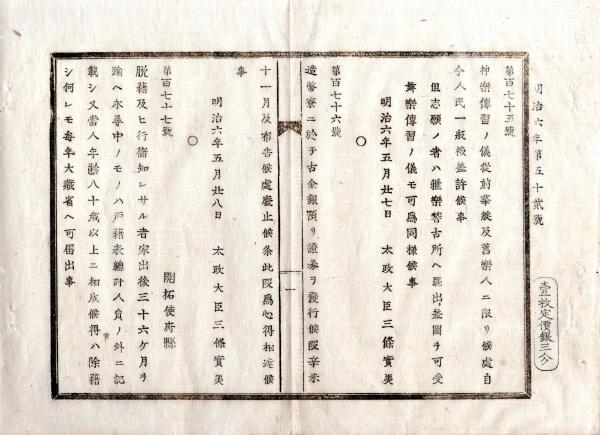 明治六年第五十貳號
壹枚定價銀三分
第百七十五號
神樂傳習ノ儀從前華族及舊樂人ニ限リ候處自
今人民一般被差許候事
但志願ノ者ハ雅樂稽古所ヘ罷出差圖ヲ可受
舞樂傳習ノ儀モ可爲同樣候事
明治六年五月廿七日 太政大臣三條實美
○
第百七十六號
造幣寮ニ於テ古金銀預リ證券ヲ發行候段辛未
一
十一月及布告候處廢止候条此段爲心得相達候
事
明治六年五月廿八日 太政大臣三條實美
○
第百七十七號
開拓使府縣
脱籍及ヒ行衞知レサル者家出後三十六ケ月ヲ
踰ヘ永尋中ノモノハ戸籍表總計人員ノ外ニ記
載シ又當人年齡八十歳以上ニ相成候得ハ除籍
シ何レモ每年大藏省ヘ可屆出事